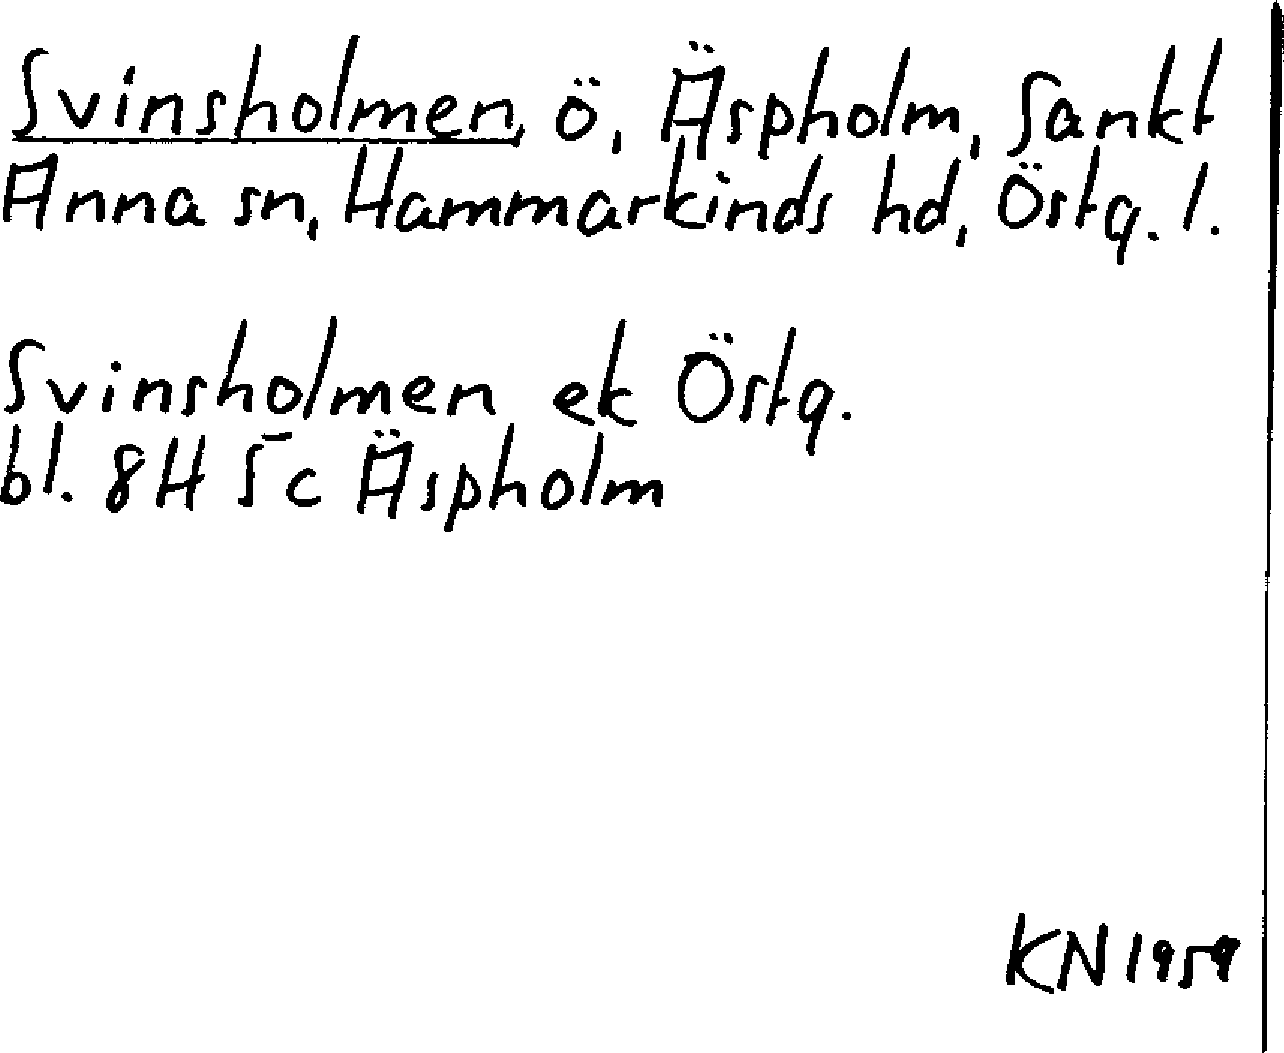 Svinsholmen, ö, Äspholm, Sankt
Anna sn, Hammarkinds hd, Östg. l.
Svinsholmen ek Östg.
bl. 8H 5c Äspholm
KN 1959